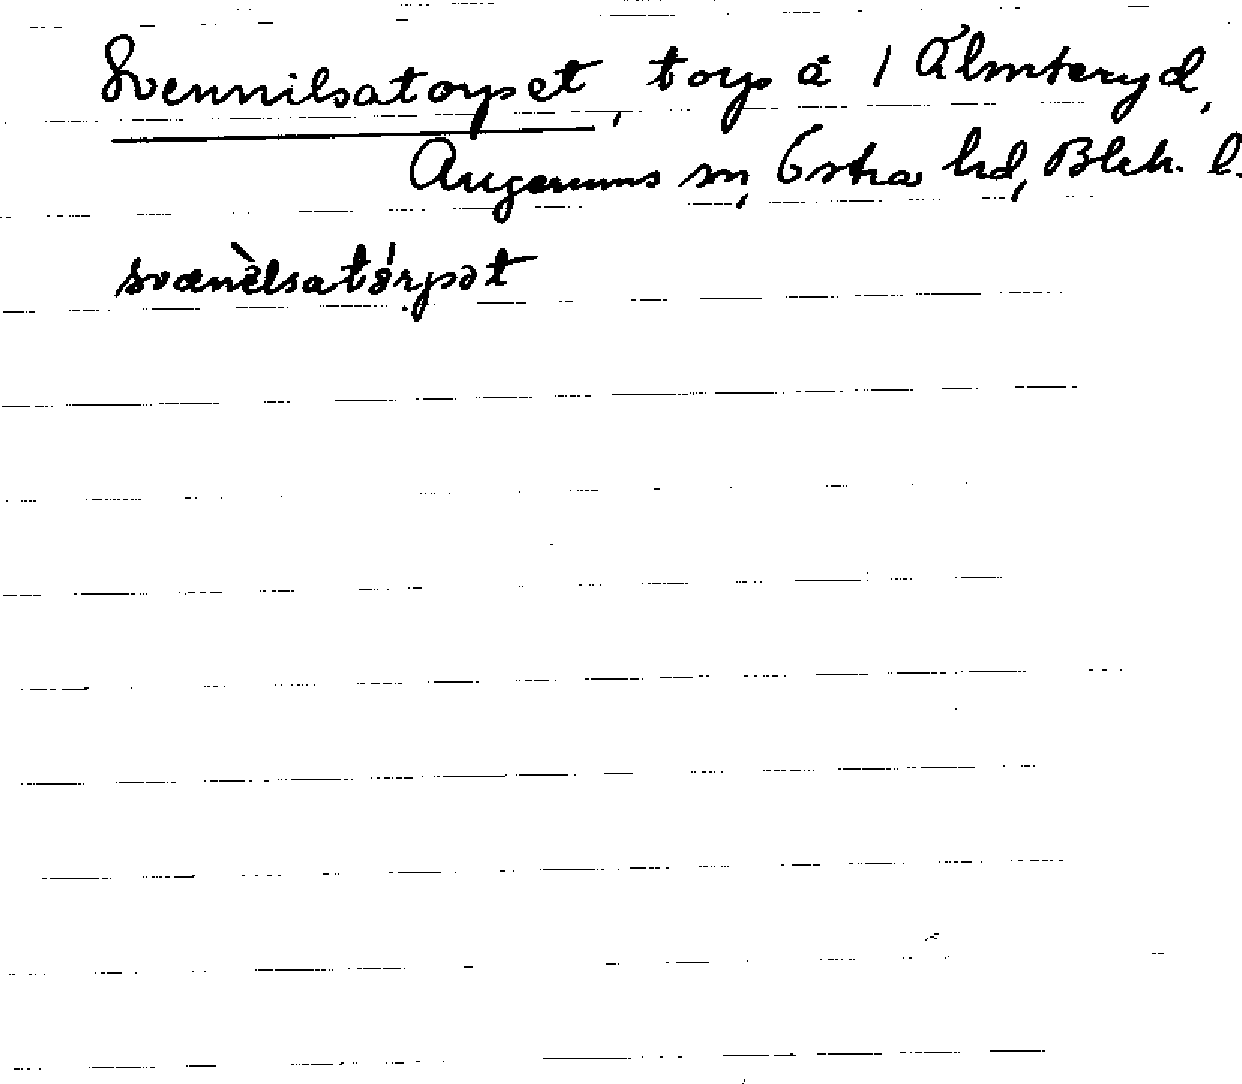 Svennilsatorpet, torp å 1 Älmteryd,
Augerums sn, Östra hd, Blek. l.
svænèlsatórpət